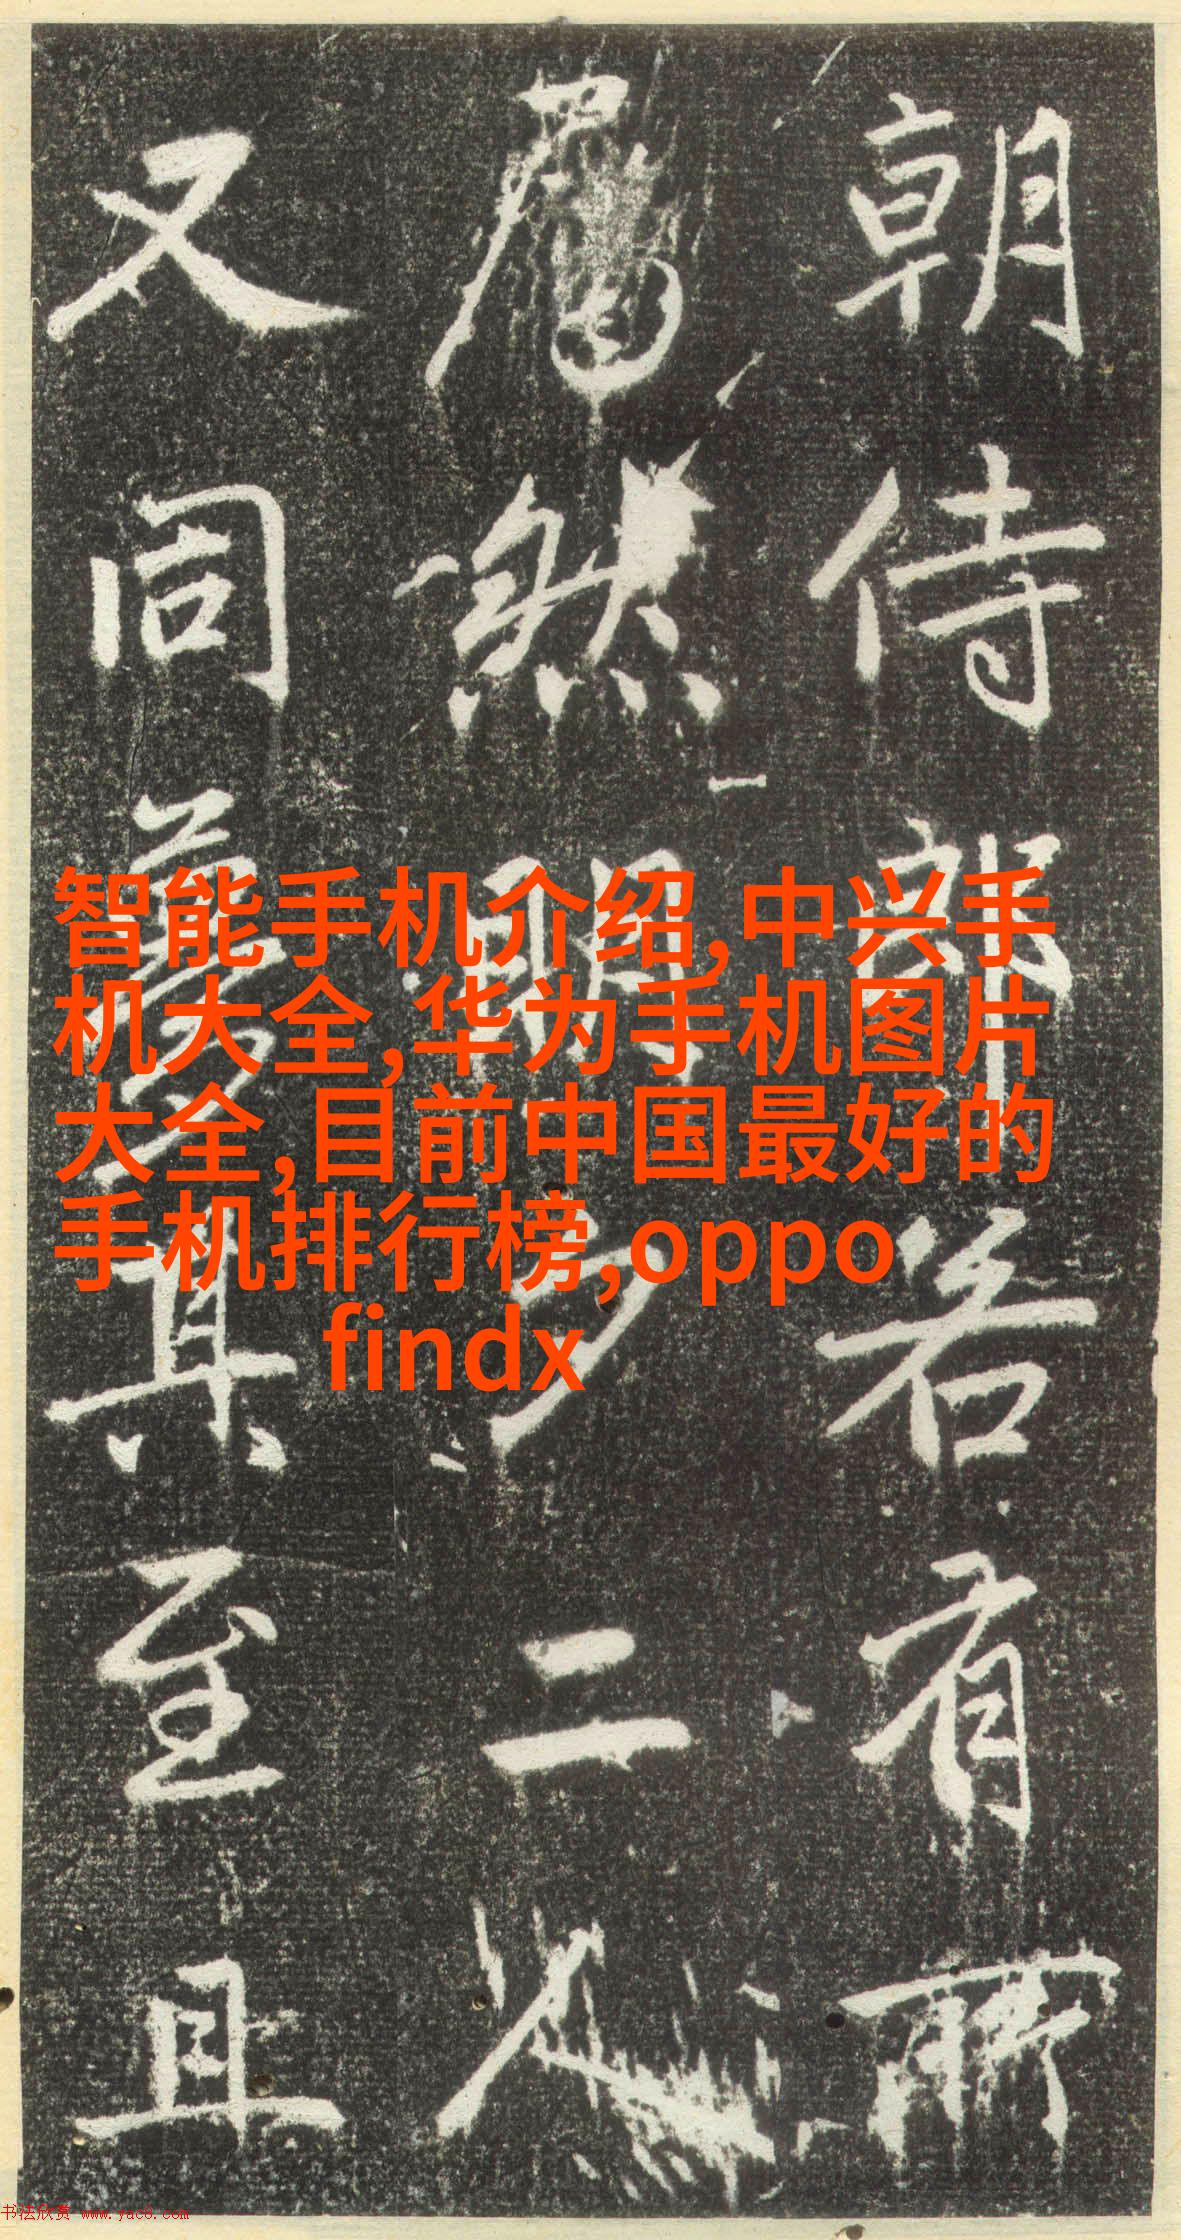 朝侍郎若有所
然明夕二人
又同彝其至且
智能手机介绍,中兴手
机大全,华为手机图片
大全,目前中国最好的
手机排行榜,oppo
findx
书法欣赏 www.yac8.com